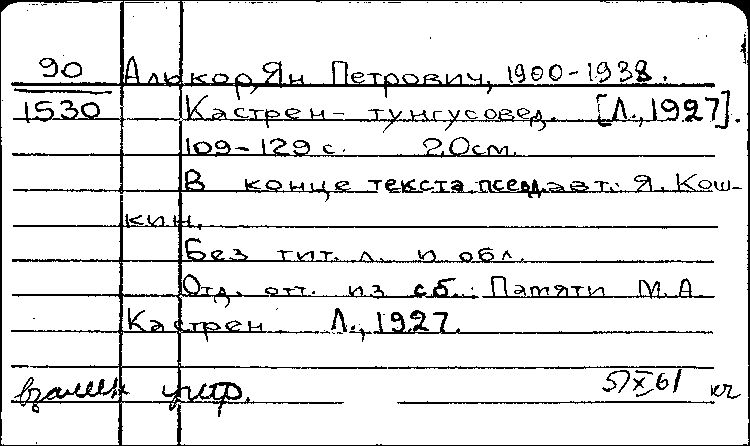 90 Алькор, Ян Петрович, 1900-1938.
1530 Кастрен- тунгусовед. [Л., 1927].
109-129 с. 20см.
В конце текста псевд. авт. Я. Кош-
кин.
Без тит. л. и обл.
Отд. отт. из сб.: Памяти М.А.
Кастрен. Л., 1927.
взамен утр. 5/X 61